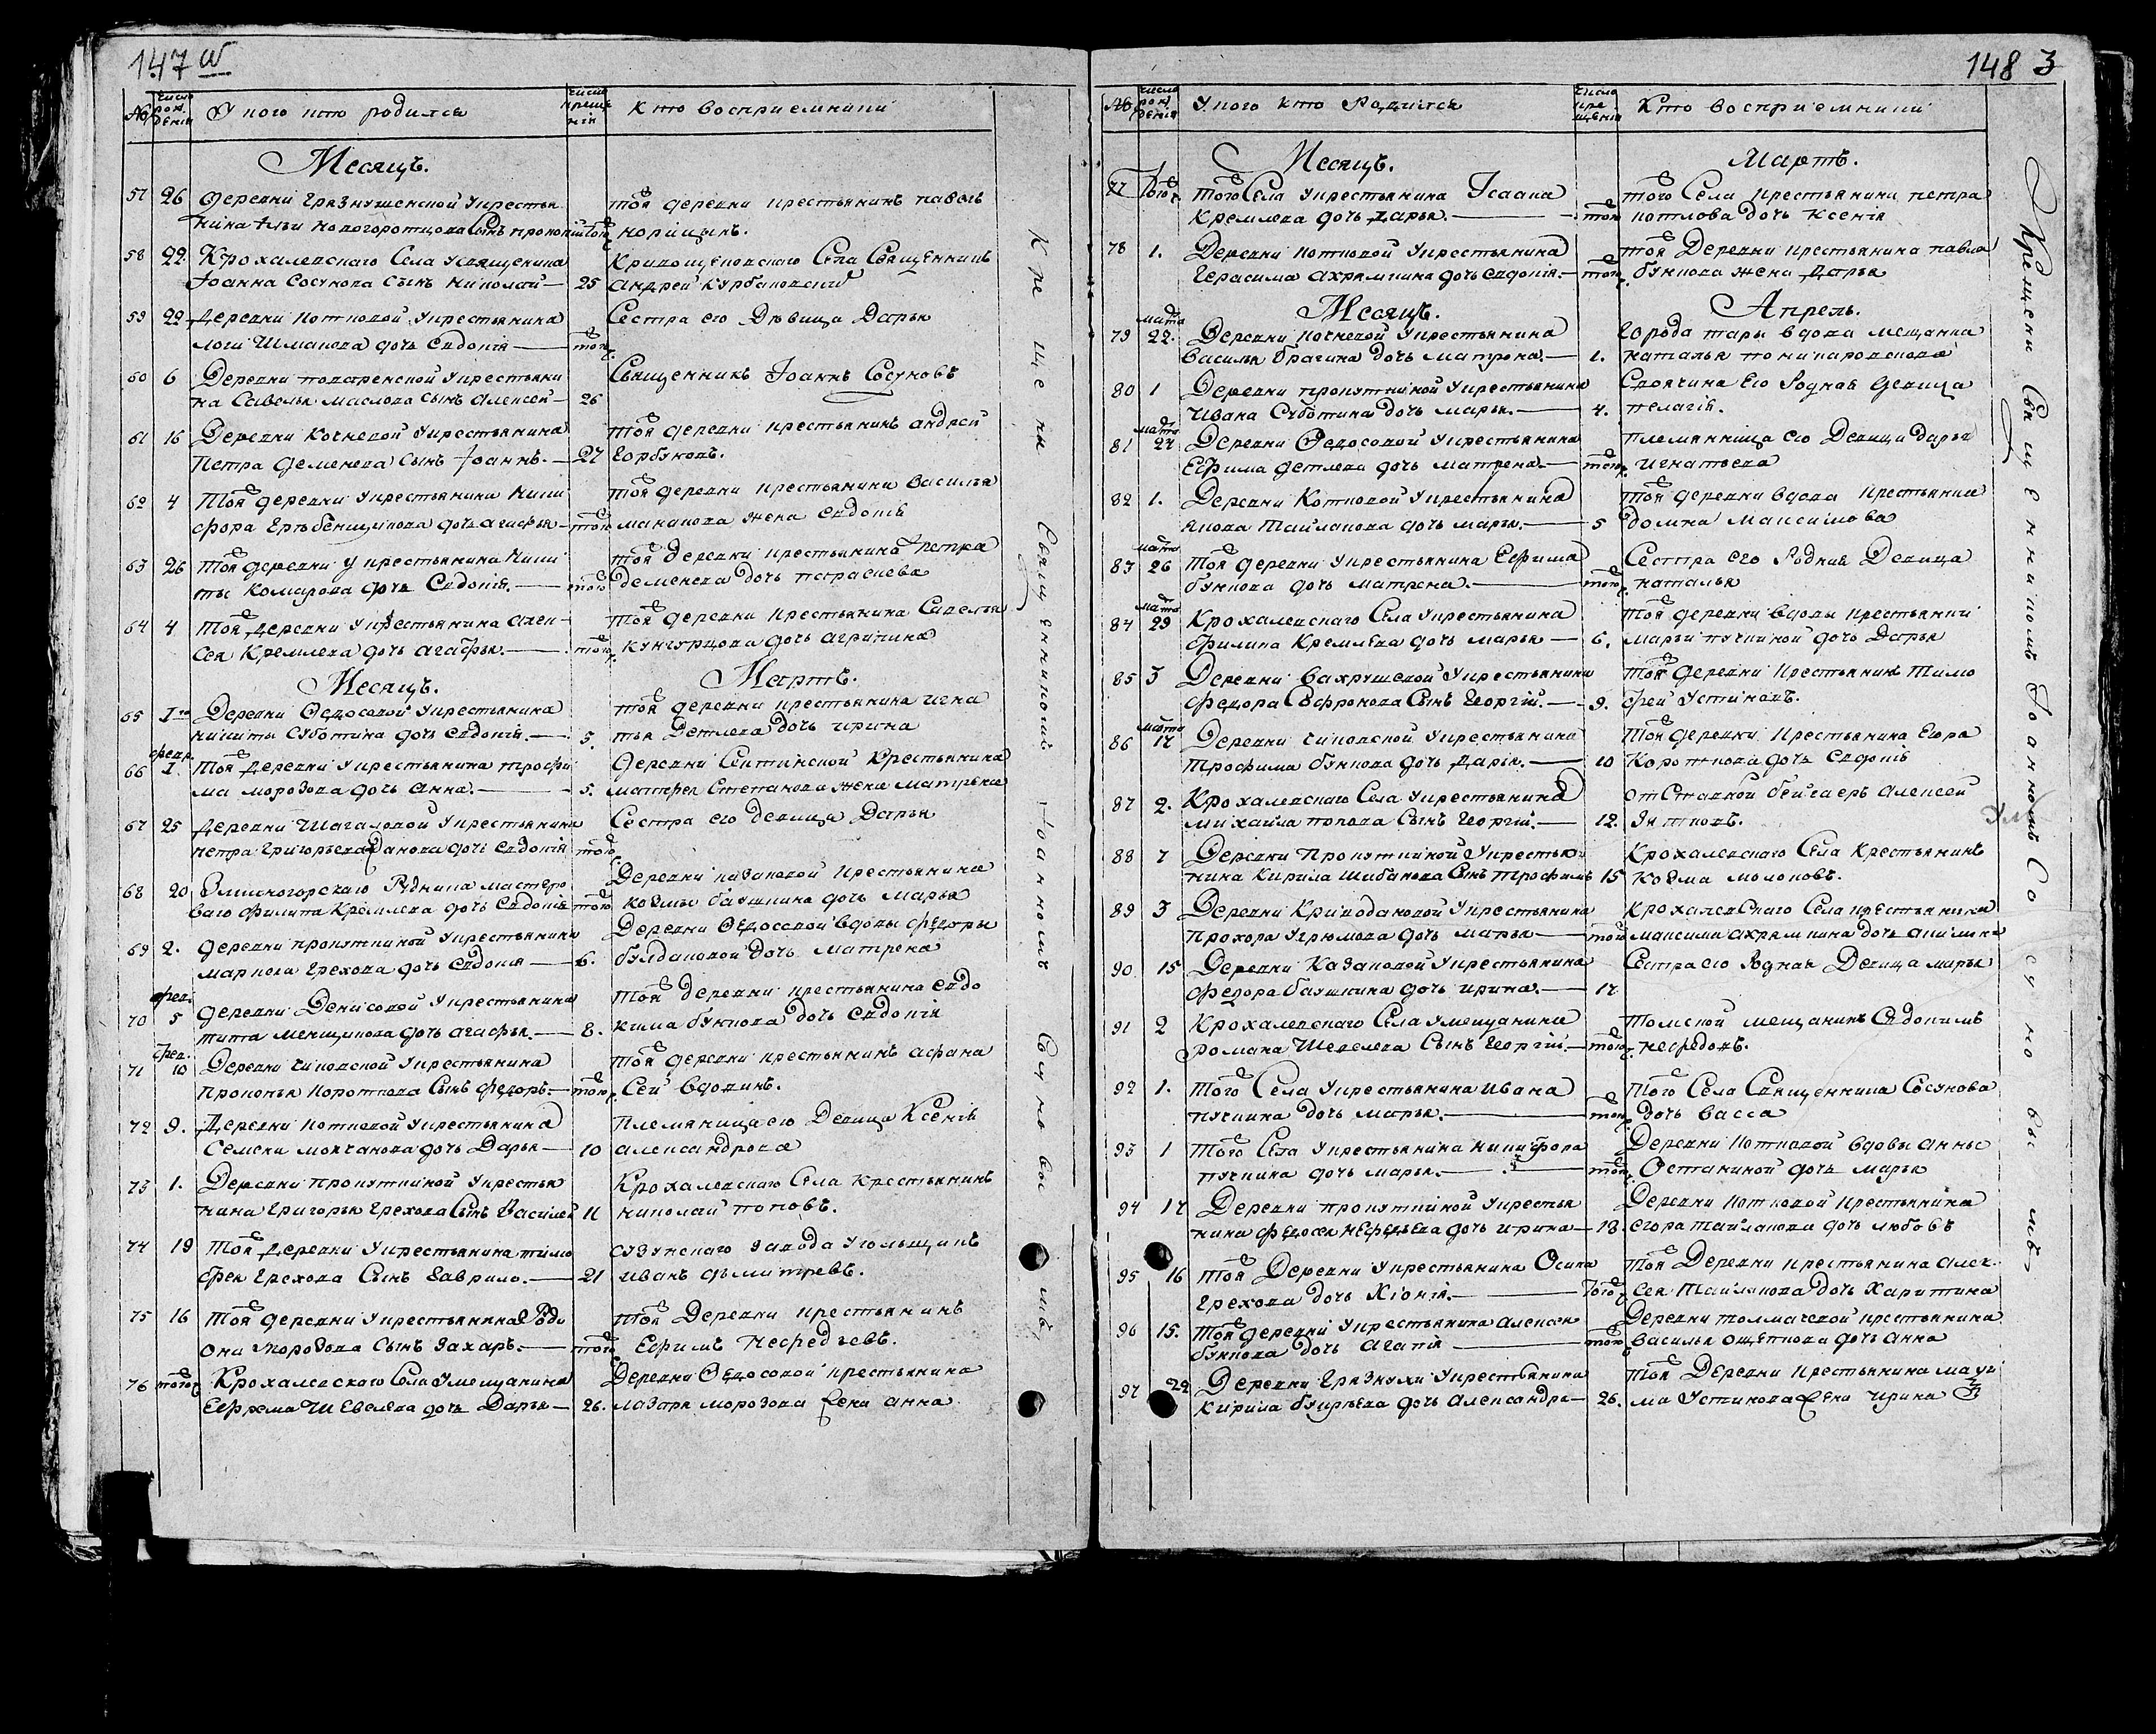 147 об
№ число рождения У кого кто родился число крещения Кто восприемники
Месяцъ.
57 26 деревни Грязнушенской у крестья тоя деревни крестьянинъ павелъ
нина Ильи Новогоротцова сынъ прокопий того ч. корицынъ.
58 22. Крохалевскаго Села у священика Кривощековскаго Села Священникъ
Иоанна Сосунова Сынъ николай — 25 андрей курбановский
59 22 Деревни котковой у крестьянина Сестра его Дѣвица Дарья
Шмакова дочь Евдокия — того ч.
60 6 Деревни у крестьяни Священникъ Иоаннъ Сосуновъ
на Савелья маслова сынъ Алексей — 26
61 16 Деревни Кочневой у крестьянина тоя деревни крестьянинъ андрей
Петра деменева сынъ Иоаннъ. — 27 Горбуновъ.
62 4 Тоя деревни у крестьянина ники тоя деревни крестьянина василья
фора Гребенщикова дочь агафья — того ч. маникова жена евдокия
63 26 тоя деревни у крестьянина ники тоя деревни крестьянина петра
ты Комарова дочь Евдокия. — того ч. деменева дочь
64 4 тоя деревни у крестьянина алек- тоя деревни крестьянина Савелья
сея Кремлева дочь агафья. — того ч. кунгурцова дочь агрипина
Месяцъ. Мартъ.
65 1го Деревни Федосовой у крестьянина тоя деревни крестьянина игна
никиты Суботина дочь евдокия. — 5. тья Детлева дочь ирина
февр.
66 1. тоя деревни у крестьянина трофи деревни крестьянина
ма морозова дочь анна. — 5. матфея Степанова жена матрена
67 25 деревни Шагаловой у крестьянина Сестра его девица Дарья
петра Григорьева дочь евдокия того ч.
68 20 Змеиногорскаго Рудника мастеро Деревни казаковой крестьянина
ваго филипа Кремлева дочь Евдокия того ч. козмы баушкина дочь марья
69 2. деревни прокуткиной у крестьянина Деревни Федосовой вдовы федоры
маркела Грехова дочь евдокия — 6. булдаковой дочь матрена
февр.
70 5 деревни Денисовой у крестьянина тоя деревни крестьянина евдо
тита менщикова дочь агафья. — 8. кима букнова дочь евдокия
февр.
71 10 Деревни чиковской у крестьянина тоя деревни крестьянинъ афана
прокопья короткова сынъ федоръ. — того ч. сей вдовинъ.
72 9. Деревни котковой у крестьянина Племяница его Девица Ксения
Семена молчанова дочь Дарья — 10 александрова
73 1. Деревни прокуткиной у крестья Крохалевскаго Села крестьянинъ
нина Григорья Грехова сынъ Василей 11 николай поповъ.
74 19 тоя деревни у крестьянина тимо Сузунскаго завода угольщикъ
фея Грехова Сынъ Гаврило. — 21 иванъ дьмитревъ.
75 16 тоя деревни у крестьянина Роди тоя Деревни крестьянинъ
она морозова Сынъ захаръ. — того ч. Ефимъ нефедьевъ.
76 того ч. Крохалевскаго Села у мещанина Деревни Федосовой крестьянина
Ефрема Шевелева дочь Дарья — 26. лазаря морозова жена анна
Крещены Священникомъ Иоанномъ Сосуновымъ
148 3
№ число рождения У кого кто Родился число крещения Кто восприемники
Месяцъ. Мартъ.
77 того ч. того Села у крестьянина Исаака того Села крестьянина петра
Кремлева дочь дарья. — того ч. котлова дочь ксения
78 1. Деревни котковой у крестьянина тоя Деревни крестьянина павла
Герасима ахрямкина дочь евдокия. — того ч. букнова жена Дарья
Месяцъ. Апрель.
марта
79 22. Деревни кочневой у крестьянина Города тары вдова мещанка
василья брагина дочь матрона. — 1. наталья
80 1 Деревни прокуткиной у крестьянина Своячина Его Родная девица
Ивана Суботина дочь марья. — 4. пелагия.
марта
81 27 Деревни Федосовой у крестьянина племянница его Девица дарья
Ефима детлева дочь матрена. — того ч. игнатьева
82 1. Деревни Котковой у крестьянина тоя деревни вдова крестьянка
якова Тайлакова дочь марья. — 5 домна максимова
марта
83 26 тоя деревни у крестьянина Ефима Сестра его Родная Девица
букнова дочь матрена. — того ч. наталья
марта
84 29 Крохалевскаго Села у крестьянина тоя деревни вдовы крестьянки
филипа Кремлева дочь марья — 6. марьи пучкиной дочь Дарья
85 3 Деревни вахрушевой у крестьянина тоя деревни крестьянинъ Тимо
федора Софронова Сынъ Георгий. — 9. фей устиновъ.
марта
86 17 Деревни чиковской у крестьянина тоя деревни крестьянина Егора
трофима букнова дочь Дарья. — 10 Короткова дочь евдокия
87 2. Крохалевскаго Села у крестьянина отставной алексей
михайла попова Сынъ Георгий. — 12. зятковъ.
88 7 Деревни прокуткиной у крестья Крохалевскаго Села крестьянинъ
нина Кирила Шибанова Сынъ трофимъ 15 козма молоковъ.
89 3 Деревни Криводановой у крестьянина Крохалевскаго Села крестьянина
Прохора угрюмова дочь марья — того ч. максима ахрямкина дочь акилина
90 15 Деревни Казаковой у крестьянина Сестра его Родная Девица марья
федора баушкина дочь ирина. — 17
91 2 Крохалевскаго Села у мещанина томской мещанинъ евдокимъ
романа Шевелева Сынъ Георгий. — того ч. нефедовъ.
92 1. того Села у крестьянина ивана того Села Священника Сосунова
пучкина дочь марья. — того ч. дочь васса
93 1 того Села у крестьянина никифора Деревни котковой вдовы анны
пучкина дочь марья. — того ч. Останиной дочь марья
94 17 Деревни прокуткиной у крестья Деревни котковой крестьянина
нина федосея нефедьева дочь ирина — 18 егора тайлакова дочь любовь
95 16 тоя Деревни у крестьянина Осипа тоя Деревни крестьянина алек-
Грехова дочь Хиония. — того ч. сея тайлакова дочь харитина
96 15. тоя деревни у крестьянина алексея Деревни толмачевой крестьянина
букнова дочь агапия — того ч. василья ощепкова дочь анна
97 22 Деревни Грязнухи у крестьянина тоя Деревни крестьянина
Кирила дочь александра — 26. устинова жена ирина
Крещены Священникомъ Иоанномъ Сосуновымъ